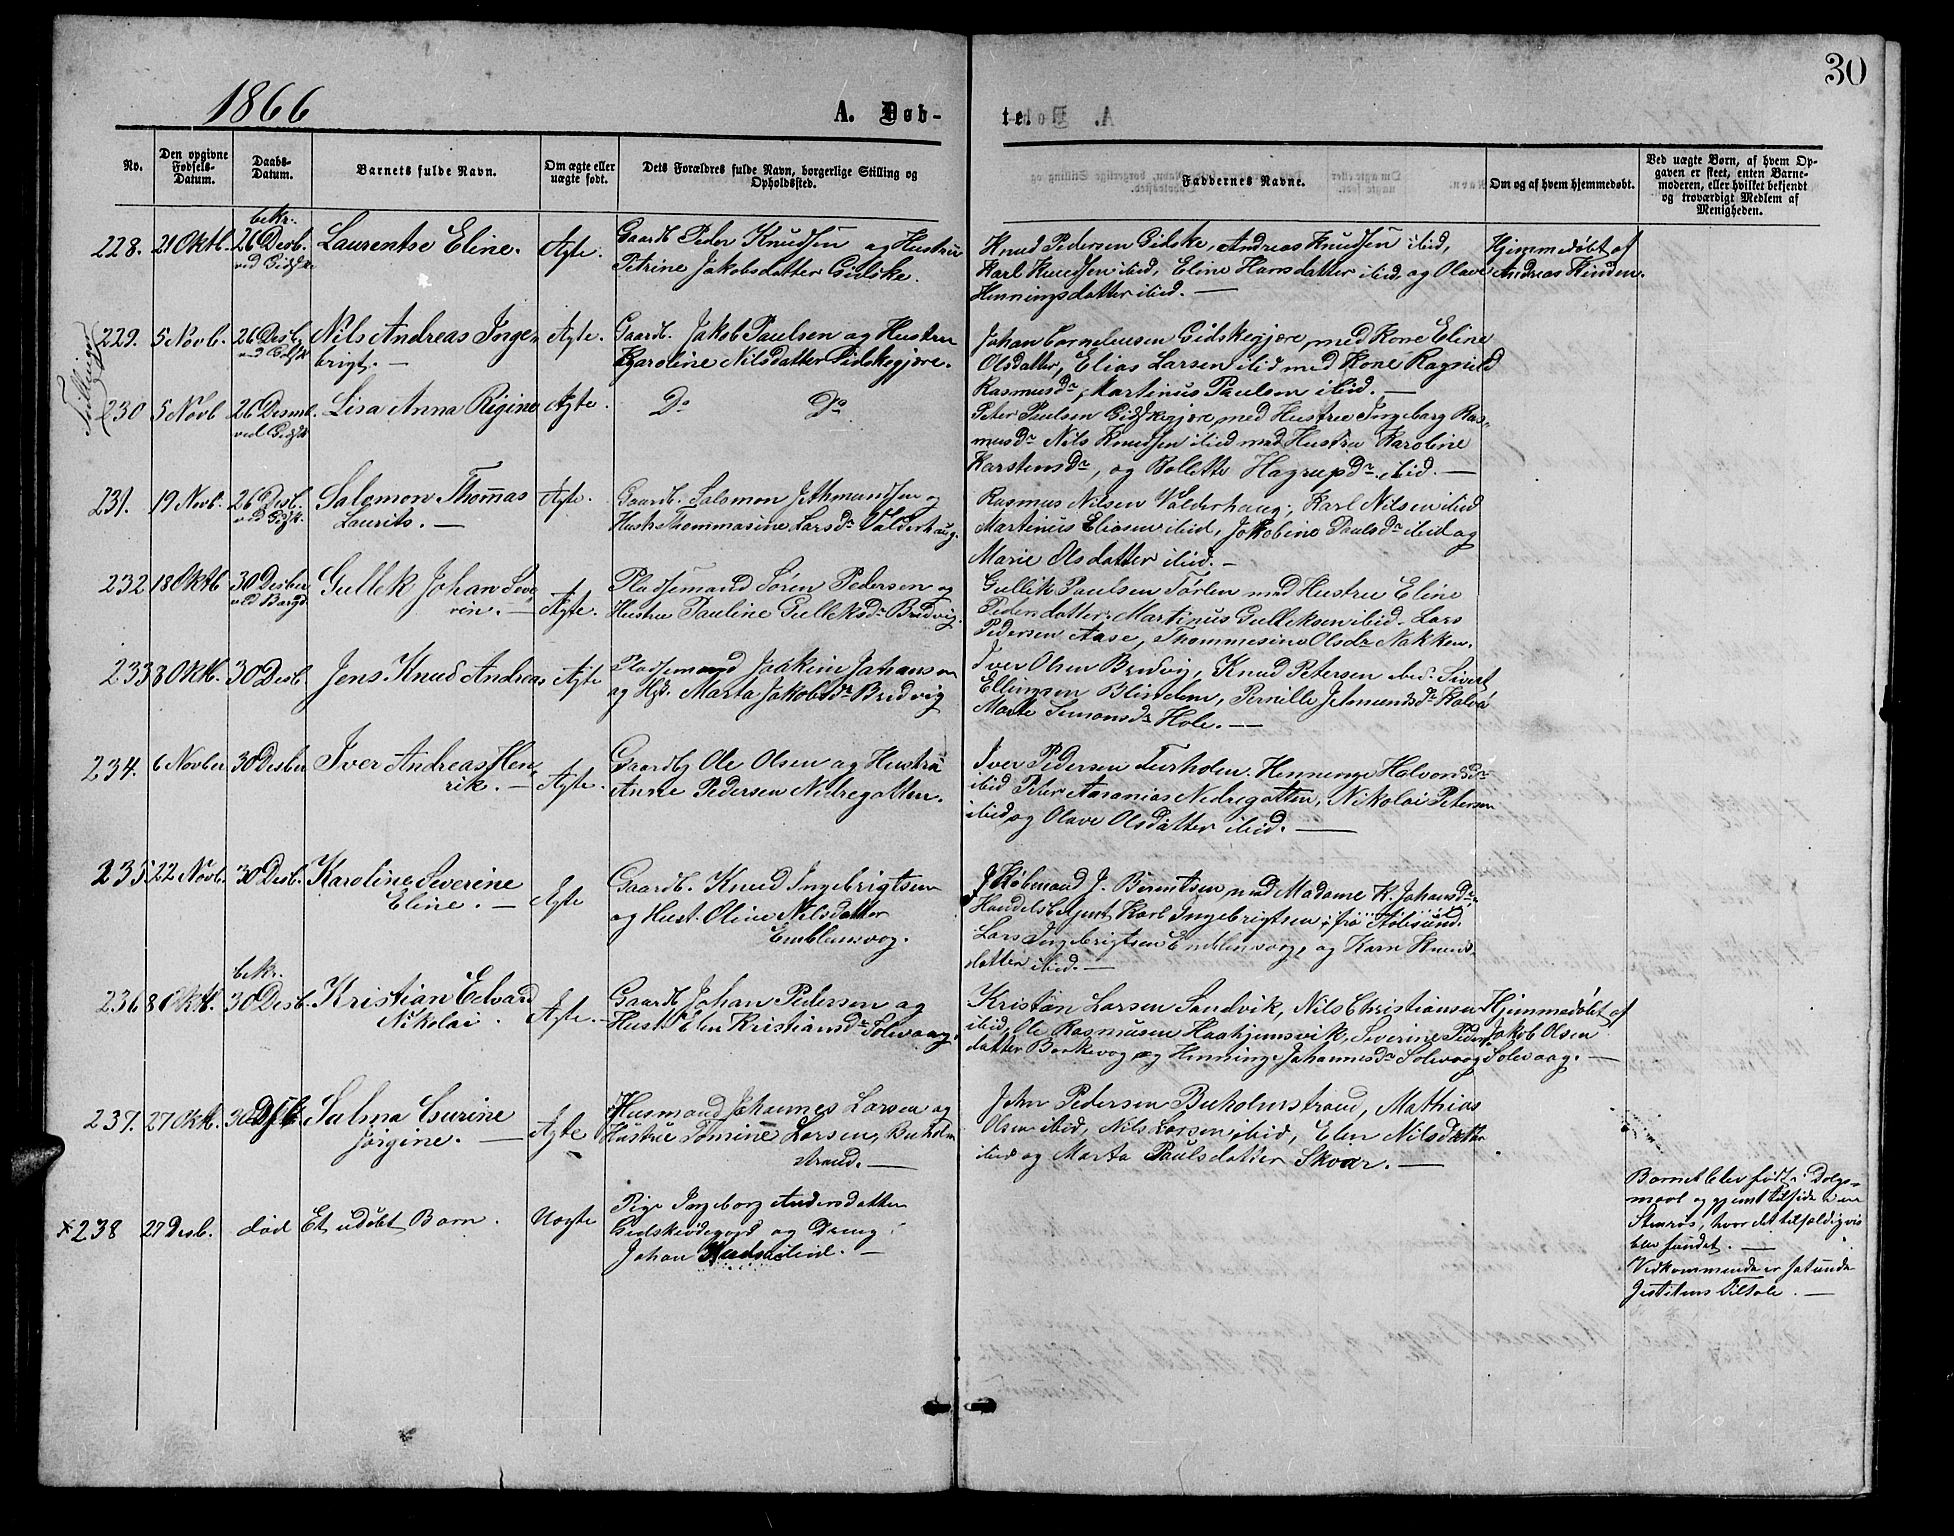 30
1866
A. Døb-
te.
No.
Den opgivne Fødsels-Datum.
Daabs-Datum.
Barnets fulde Navn.
Om ægte eller uægte født.
Dets Forældres fulde Navn, borgerlige Stilling og Opholdssted.
Faddernes Navne.
Om og af hvem hjemmedøbt.
Ved uægte Børn, af hvem Opgaven er skeet, enten Barnemoderen, eller hvilket bekjendt og troværdigt Medlem af Menigheden.
228. 21 Oktb. bekr. 26 Desb. ved Gidsk. Laurentse Eline. Ægte.
Gaardb. Peder Knudsen og Hustru
Petrine Jakobsdatter Gidske.
Knud Pedersen Gidske, Andreas Knudsen ibid,
Karl Knudsen ibid, Eline Hansdatter ibid og Olave
Henningsdatter ibid. —
Hjemmedøbt af
Andreas
Tvillinger
229. 5 Novb. 26 Desb. ved Gidsk. Nils Andreas Inge-
brigt. — Ægte.
Gaardb. Jakob Paulsen og Hustru
Karoline Nilsdatter Gidskegjøre.
Johan Cornelusen Gidskegjøre, med Kone Eline
Olsdatter, Elias Larsen ibid med Kone Ragnild
Rasmusdr, Martinus Paulsen ibid. —
230 5 Novb 26 Desmb. ved Gidsk Lisa Anna Rigine Ægte.
Do Do
Peter Paulsen Gidskegjøre, med Hustru Ingebarg Ras-
musdr Nils Knudsen ibid med Hustru Karoline
Karstensdr, og Bolette Hagrupdr ibid. —
231. 19 Novb. 26 Desb. ved Gidsk. Salomon Thomas
Laurits. — Ægte.
Gaardb. Salamon Jethmundsen og
Hustr. Thommasine Larsdr Valderhaug.
Rasmus Nilsen Valderhaug, Karl Nilsen ibid
Martinus Eliasen ibid, Jakobine Paulsdr ibid og
Marie Olsdatter ibid. —
232 18 Oktb 30 Desber ved Borgd Gullek Johan Seve-
rin. — Ægte.
Pladsemand Søren Pedersen og
Hustru Pauline Gulleksdr Bredvig.
Gullik Paulsen Tørlen med Hustru Eline
Pedersdatter, Martinus Gulleksen ibid. Lars
Pedersen Aase, Thommesine Olsdr Nakken.
233 8 Oktb. 30 Desb. Jens Knud Andreas Ægte
Pladsemand Joakim Johansen
og Hst. Marta Jakobsdr Bredvig
Iver Olsen Bredvig, Knud Petersen ibid. Sivert
Ellingsen Blindem, Pernille Jetmundsdr Kalvø
Marte Simonsdr Hole. —
234. 6 Novber 30 Desber Iver Andreas Hen-
rik. — Ægte.
Gaardbg Ole Olsen og Hustru
Anne Pedersen Nedregotten.
Iver Pedersen Furholen. Henninge Halvorsdr
ibid Peter Ananias Nedregotten, Nikolai Petersen
ibid og Olave Olsdatter ibid. —
235 22 Novb. 30 Desb. Karoline Severine
Eline. — Ægte
Gaardb. Knud Ingebrigtsen
og Hust. Oline Nilsdatter
Emblemsvog.
Kjøbmand J. Berentsen med Madame K. Johansdr,
Handelsbetjent Karl Ingebrigtsen, fra Aalesund.
Lars Ingebrigtsen Emblemsvog, og Karn Knuds-
datter ibid. —
236 8 Oktb. bekr. 30 Desb. Kristian Edvard
Nikolai. Ægte.
Gaardb Johan Pedersen og
Hust. Elen Kristiansdr Solevaag.
Kristian Larsen Sandvik, Nils Christiansen
ibid, Ole Rasmusen Haahjemsvik, Severine Peders-
datter Borkevog og Henninge Johannesdr Solevaag
Hjemmedøbt af
Jakob Olsen
Solevaag. —
237. 27 Oktb. 30 Dsb. Salma Gurine
Jørgine. — Ægte
Husmand Johannes Larsen og
Hustru Tomine Larsen, Buholm-
strand. —
John Pedersen Buholmstrand, Mathias
Olsen ibid, Nils Larsen ibid, Elen Nilsdatter
ibid og Marta Paulsdatter Skoar. —
x 238 27 Desb. død Et udøbt Barn. Uægte
Pige Ingeborg Andersdatter
Gidskeødegard og Dreng
Johan Knudsen ibid. —
Barnet blev født i Dølgs-
maal og gjemt tilside i en
Stenrøs, hvor det tilfældigvis
blev fundet. —
Vedkommende er sat under
Justitiens Tiltale. —